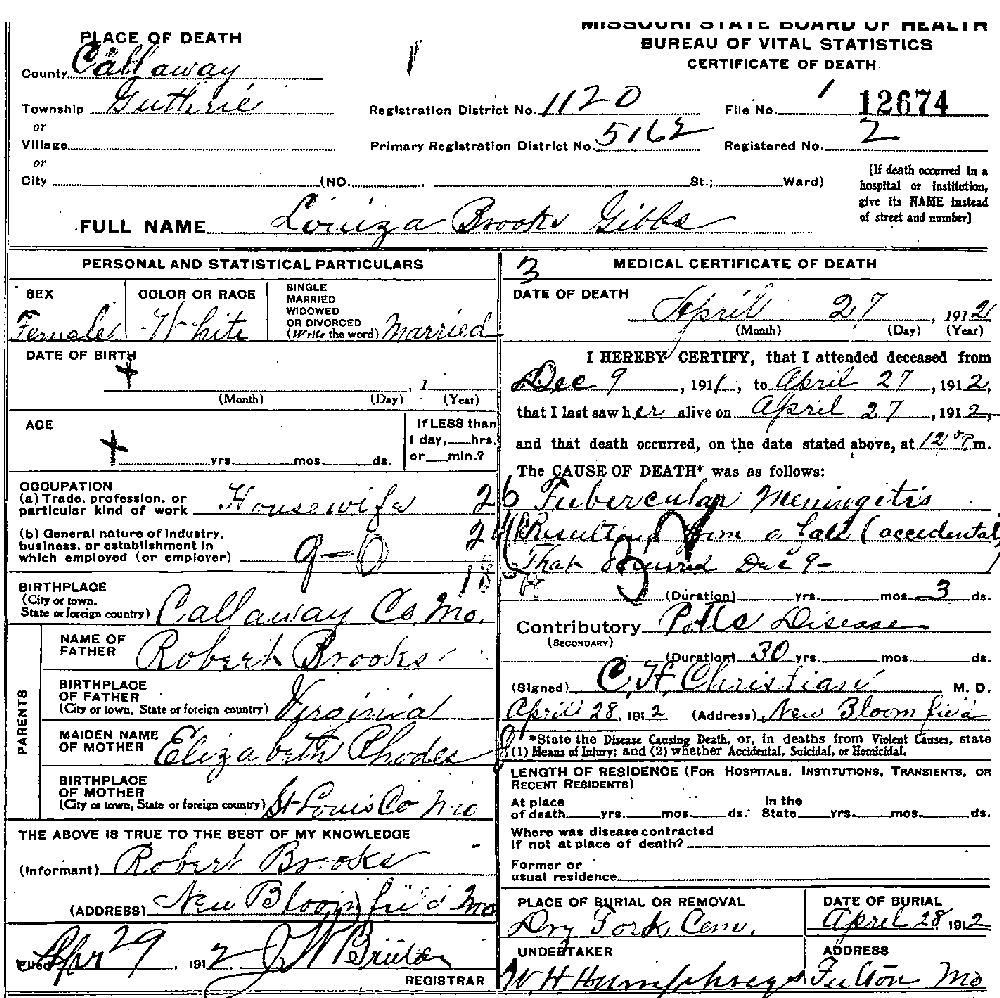 MISSOURI STATE BOARD OF HEALTH
BUREAU OF VITAL STATISTICS
CERTIFICATE OF DEATH
PLACE OF DEATH
County Callaway
Township Guthrie
or
Village
or
City (NO. St.; Ward)
Registration District No. 1120
File No. 12674
Primary Registration District No. 5162
Registered No. 2
[If death occurred in a
hospital or institution,
give its NAME instead
of street and number]
FULL NAME Louiza Brooks Gibbs
PERSONAL AND STATISTICAL PARTICULARS
SEX
Female
COLOR OR RACE
White
SINGLE
MARRIED
WIDOWED
OR DIVORCED
(Write the word) Married
DATE OF BIRTH
, 1
(Month) (Day) (Year)
AGE
yrs. mos. ds.
If LESS than
1 day, hrs.
or min.?
OCCUPATION
(a) Trade, profession, or
particular kind of work Housewife
(b) General nature of industry,
business, or establishment in
which employed (or employer)
9-0
BIRTHPLACE
(City or town,
State or foreign country) Callaway Co. Mo.
PARENTS
NAME OF
FATHER Robert Brooks
BIRTHPLACE
OF FATHER
(City or town, State or foreign country) Virginia
MAIDEN NAME
OF MOTHER Elizabeth Rhodes
BIRTHPLACE
OF MOTHER
(City or town, State or foreign country) St Louis Co Mo
THE ABOVE IS TRUE TO THE BEST OF MY KNOWLEDGE
(Informant) Robert Brooks
(ADDRESS) New Bloomfield Mo
Filed Apr 29, 1912
REGISTRAR
3
MEDICAL CERTIFICATE OF DEATH
DATE OF DEATH
April 27, 1912
(Month) (Day) (Year)
I HEREBY CERTIFY, that I attended deceased from
Dec 9, 1911, to April 27, 1912,
that I last saw her alive on April 27, 1912,
and that death occurred, on the date stated above, at m.
The CAUSE OF DEATH* was as follows:
Tubercular Meningitis
Resulting from a fall (accidental)
That occurred Dec 9-
(Duration) yrs. mos. 3 ds.
Contributory Potts Disease
(SECONDARY)
(Duration) 30 yrs. mos. ds.
(Signed) C. H. Christian M. D.
April 28, 1912 (Address) New Bloomfield
*State the Disease Causing Death, or, in deaths from Violent Causes, state
(1) Means of Injury; and (2) whether Accidental, Suicidal, or Homicidal.
LENGTH OF RESIDENCE (FOR HOSPITALS, INSTITUTIONS, TRANSIENTS, OR
RECENT RESIDENTS)
At place
of death yrs. mos. ds.
In the
State yrs. mos. ds.
Where was disease contracted
if not at place of death?
Former or
usual residence
PLACE OF BURIAL OR REMOVAL
Dry Fork Cem.
DATE OF BURIAL
April 28 1912
UNDERTAKER
W H Humphreys
ADDRESS
Fulton Mo